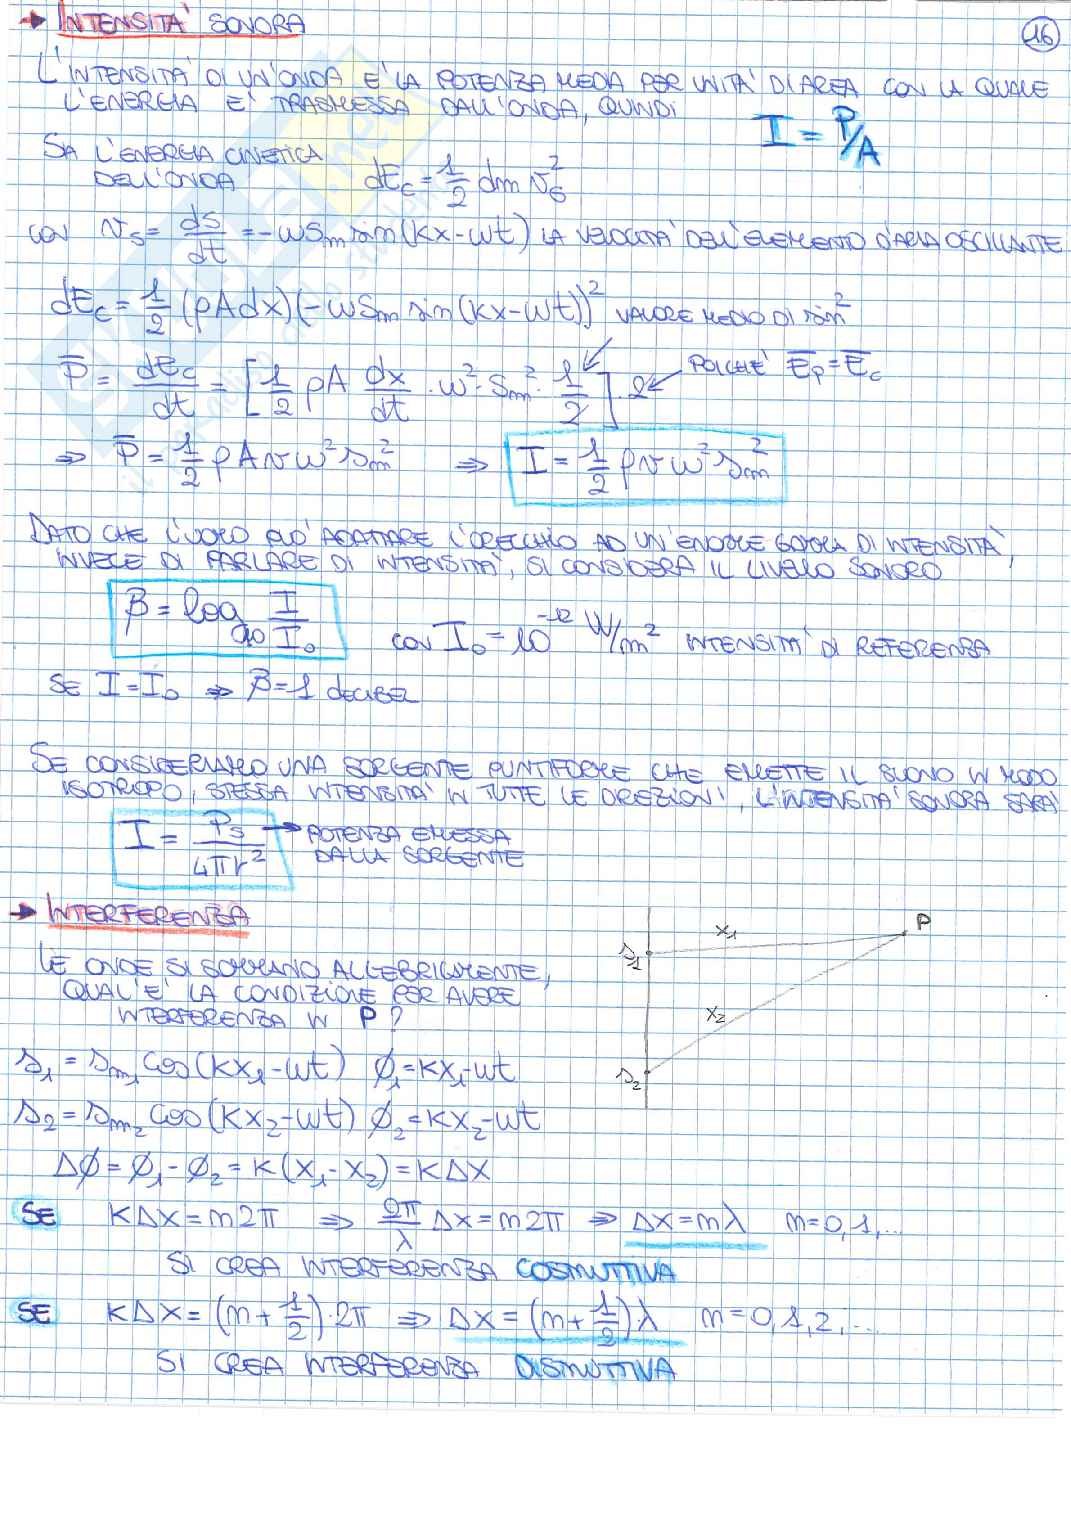 → INTENSITA' SONORA
16
L'INTENSITA' DI UN'ONDA E' LA POTENZA MEDIA PER UNITA' DI AREA CON LA QUALE
L'ENERGIA E' TRASMESSA DALL'ONDA, QUINDI
I = P/A
SIA L'ENERGIA CINETICA
DELL'ONDA dEc = 1/2 dm vs²
CON vs = ds/dt = -ωSm sin(kx-ωt) LA VELOCITA' DELL'ELEMENTO D'ARIA OSCILLANTE
dEc = 1/2 (ρAdx)(-ωSm sin(kx-ωt))² VALORE MEDIO DI sin²
P̄ = dEc/dt = [1/2 ρA dx/dt · ω² · Sm² · 1/2] · 2 POICHE' Ēp = Ēc
⇒ P̄ = 1/2 ρAvω²sm² ⇒ I = 1/2 ρvω²sm²
DATO CHE L'UOMO PUO' ADATTARE L'ORECCHIO AD UN'ENORME GAMMA DI INTENSITA',
INVECE DI PARLARE DI INTENSITA', SI CONSIDERA IL LIVELLO SONORO
β = log10 I/I0 CON I0 = 10⁻¹² W/m² INTENSITA' DI REFERENZA
SE I = I0 ⇒ β = 1 DECIBEL
SE CONSIDERIAMO UNA SORGENTE PUNTIFORME CHE EMETTE IL SUONO IN MODO
ISOTROPO, STESSA INTENSITA' IN TUTTE LE DIREZIONI, L'INTENSITA' SONORA SARA'
I = Ps/4πr² → POTENZA EMESSA
DALLA SORGENTE
→ INTERFERENZA
S1 x1 P
x2
S2
LE ONDE SI SOMMANO ALGEBRICAMENTE,
QUAL'E' LA CONDIZIONE PER AVERE
INTERFERENZA IN P?
s1 = sm1 cos(kx1-ωt) ϕ1 = kx1-ωt
s2 = sm2 cos(kx2-ωt) ϕ2 = kx2-ωt
Δϕ = ϕ1 - ϕ2 = k(x1-x2) = kΔx
SE kΔx = m2π ⇒ 2π/λ Δx = m2π ⇒ Δx = mλ m = 0, 1, ...
SI CREA INTERFERENZA COSTRUTTIVA
SE kΔx = (m + 1/2)·2π ⇒ Δx = (m + 1/2)·λ m = 0, 1, 2, ...
SI CREA INTERFERENZA DISTRUTTIVA